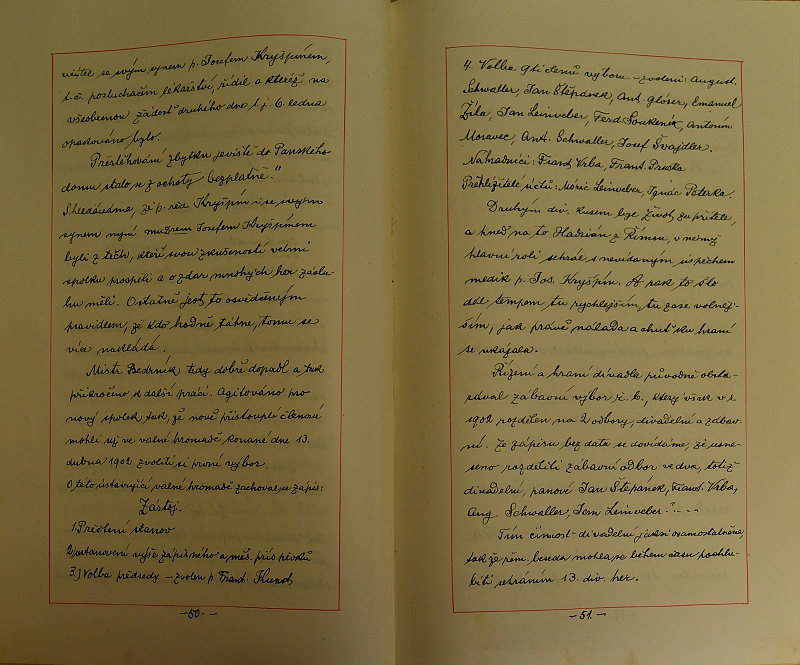 ředitel se svým synem p. Josefem Kryšpínem,
t.č. posluchačem lékařství, řídil a kteréž na
všeobecnou žádost druhého dne t.j. 6. ledna
opakováno bylo.
Přestěhování zbytku jeviště do Panského
domu stalo se z ochoty bezplatně."
Shledáváme, že p. řed. Kryšpín i se svým
synem nyní mudrem Josefem Kryšpínem
byli z těch, kteří svou zkušeností velmi
spolku prospěli a o zdar mnohých her záslu-
hu měli. Ostatně jest to osvědčeným
pravidlem, že kdo hodně táhne, tomu se
více nakládá.
Mistr Bedrník tedy dobře dopadl a tak
přikročeno k další práci. Agitováno pro
nový spolek tak, že nově přistouplí členové
mohli už ve valné hromadě konané dne 13.
dubna 1902 zvoliti si první výbor.
O této ustavující valné hromadě zachoval se zápis:
Zástoj.
1. Přečtení stanov
2.) ustanovení výše zápisného a měs. příspěvků
3.) Volba předsedy – zvolen p. Frant.
– 50. –
4. Volba 9ti členů výboru – zvoleni: August.
Schwaller, Jan Štěpánek, Ant. Glöser, Emanuel
Žíla, Jan Leinveber, Ferd. Soukeník, Antonín
Moravec, Ant. Schwaller, Josef Švajdler.
Náhradníci: Frant. Vrba, Frant.
Přehližitelé účtů: Mořic Leinveber, Ignác Peterka.
Druhým div. kusem byl Život za přítele,
a hned na to Hadrián z Římsů, v němž
hlavní roli sehrál s nevídaným úspěchem
medik p. Jos. Kryšpín. A pak to šlo
dál tempem tu rychlejším, tu zase volněj-
ším, jak právě nálada a chuť ku hraní
se ukázala.
Řízení a hraní divadla původně obsta-
rával zábavní výbor ř. b., který však v r.
1902 rozdělen na 2 odbory, divadelní a zábav-
ní. Ze zápisu bez data se dovídáme, že usne-
seno rozděliti zábavní odbor ve dva, totiž
divadelní, panové Jan Štěpánek, Frant. Vrba,
Aug. Schwaller, Jan Leinveber." - - -
Tím činnost divadelní jaksi osamostatněna,
takže řem. beseda mohla se během času pochlu-
biti sehráním 13. div. her.
– 51. –